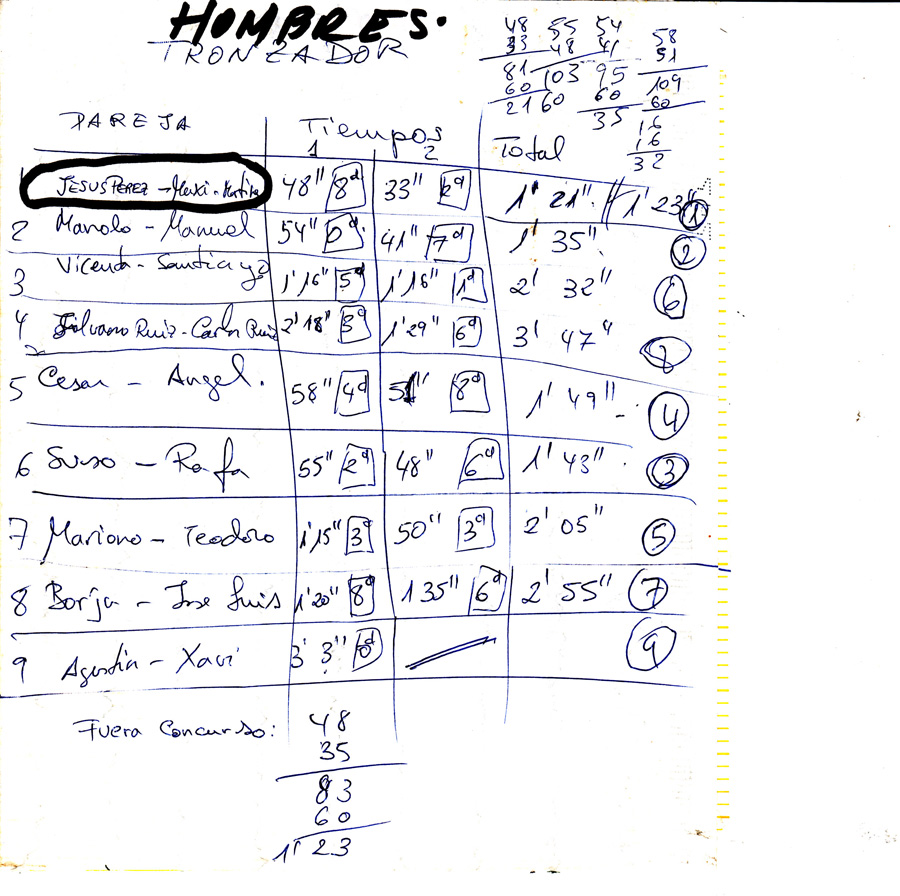 HOMBRES.
TRONZADOR
48 55 54 58
33 48 41 51
81 103 95 109
60 60 60 60
21 35 16
16
32
PAREJA Tiempos Total
1 2
JESUS PEREZ - Maxi 48" 8d 33" 2d 1' 21". // 1' 23" 1
2 Manolo - Manuel 54" 0d 41" 7d 1' 35" 2
3 Vicenta - Santiago 1'16" 5d 1'16" 1d 2' 32" 6
4 Silvano Ruiz - Carlos Ruiz 2'18" 3d 1'29" 6d 3' 47" 8
5 Cesar - Angel. 58" 4d 51" 8d 1' 49" 4
6 Suso - Rafa 55" 2d 48" 6d 1' 43" 3
7 Mariano - Teodoro 1'15" 3d 50" 3d 2' 05" 5
8 Borja - Jose Luis 1'20" 8d 135" 6d 2' 55" 7
9 Agustin - Xavi 3' 3" 0d 9
Fuera Concurso: 48
35
83
60
1' 23